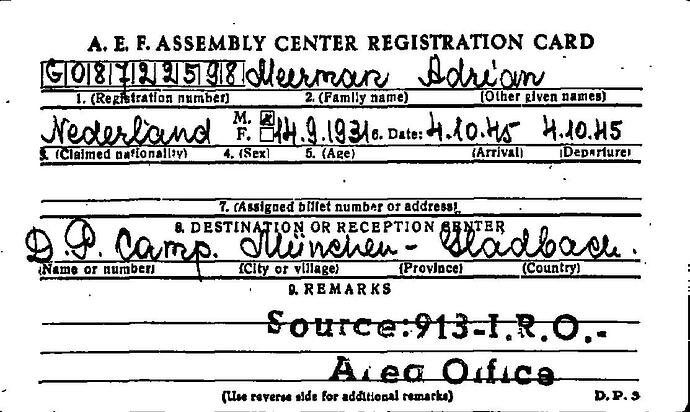 A. E. F. ASSEMBLY CENTER REGISTRATION CARD
G08722598 Meerman Adrian
1. (Registration number) 2. (Family name) (Other given names)
Nederland M. ☒ F. ☐ 14.9.1931 6. Date: 4.10.45 4.10.45
3. (Claimed nationality) 4. (Sex) 5. (Age) (Arrival) (Departure)
7. (Assigned billet number or address)
8. DESTINATION OR RECEPTION CENTER
D.P. Camp. München-Gladbach.
(Name or number) (City or village) (Province) (Country)
9. REMARKS
Source:913-I.R.O.-
Area Office
(Use reverse side for additional remarks) D. P. 3